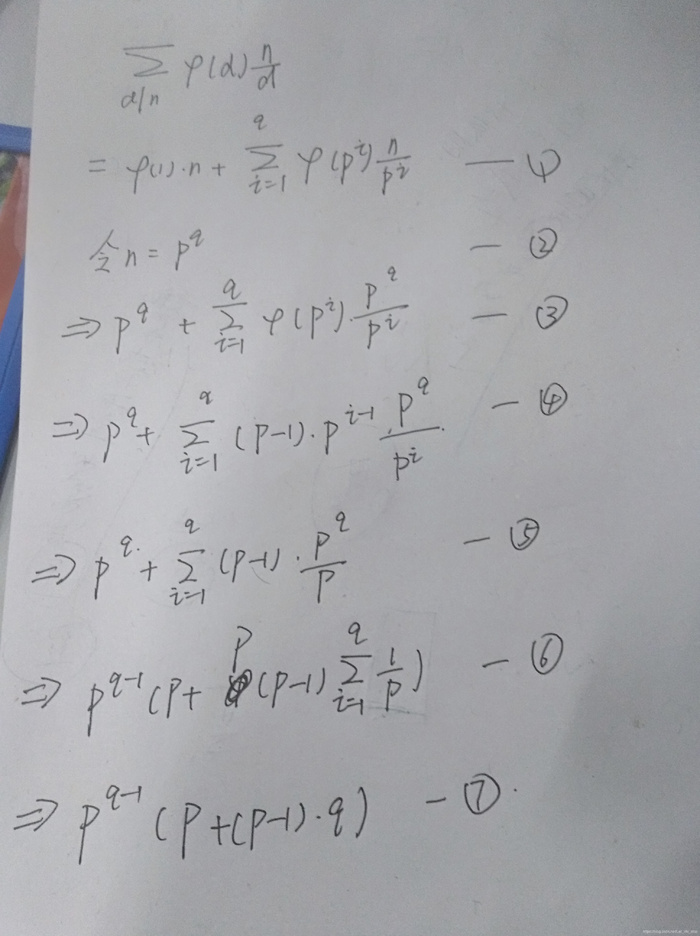 ∑_{d|n} φ(d) n/d
= φ(1)·n + ∑_{i=1}^{q} φ(p^i) n/p^i — ①
令 n = p^q — ②
⇒ p^q + ∑_{i=1}^{q} φ(p^i)·p^q/p^i — ③
⇒ p^q + ∑_{i=1}^{q} (p-1)·p^{i-1}·p^q/p^i — ④
⇒ p^q + ∑_{i=1}^{q} (p-1)·p^q/p — ⑤
⇒ p^{q-1}(p + p(p-1) ∑_{i=1}^{q} 1/p) — ⑥
⇒ p^{q-1}(p+(p-1)·q) — ⑦